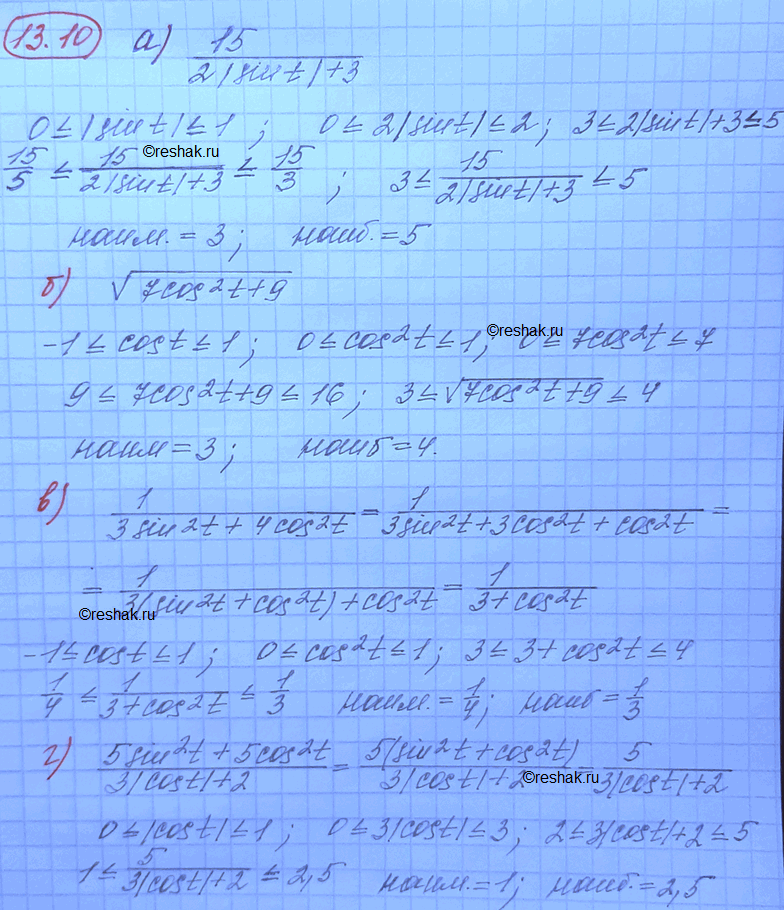 13.10 а) 15/(2|sin t|+3)
0≤|sin t|≤1; 0≤2|sin t|≤2; 3≤2|sin t|+3≤5
15/5 ≤ 15/(2|sin t|+3) ≤ 15/3; 3≤ 15/(2|sin t|+3) ≤5
©reshak.ru
наим.=3; наиб.=5
б) √(7cos²t+9)
-1≤cos t≤1; 0≤cos²t≤1; 0≤7cos²t≤7
©reshak.ru
9≤7cos²t+9≤16; 3≤√(7cos²t+9)≤4
наим=3; наиб=4.
в) 1/(3sin²t+4cos²t) = 1/(3sin²t+3cos²t+cos²t) =
= 1/(3(sin²t+cos²t)+cos²t) = 1/(3+cos²t)
©reshak.ru
-1≤cos t≤1; 0≤cos²t≤1; 3≤3+cos²t≤4
1/4 ≤ 1/(3+cos²t) ≤ 1/3 наим.=1/4; наиб=1/3
г) (5sin²t+5cos²t)/(3|cos t|+2) = 5(sin²t+cos²t)/(3|cos t|+2) = 5/(3|cos t|+2)
©reshak.ru
0≤|cos t|≤1; 0≤3|cos t|≤3; 2≤3|cos t|+2≤5
1≤ 5/(3|cos t|+2) ≤2,5 наим.=1; наиб.=2,5